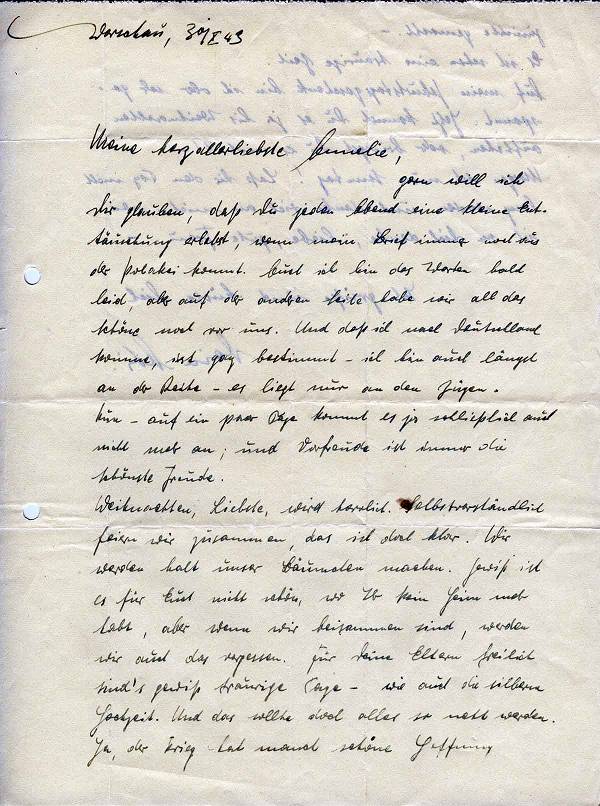 Warschau, 30/X 43
Meine herzallerliebste Annelie,
gern will ich
Dir glauben, daß Du jeden Abend eine kleine Ent-
täuschung erlebst, wenn mein Brief immer noch aus
der Polakei kommt. Auch ich bin das Warten bald
leid, aber auf der anderen Seite habe wir all das
schöne noch vor uns. Und daß ich nach Deutschland
komme, ist ganz bestimmt – ich bin auch längst
an der Reihe – es liegt nur an den Zügen.
Nun – auf ein paar Tage kommt es ja schließlich auch
nicht mehr an; und Vorfreude ist immer die
schönste Freude.
Weihnachten, Liebste, wird herrlich. Selbstverständlich
feiern wir zusammen, das ist doch klar. Wir
werden halt unser Bäumchen machen. Gewiß ist
es für Euch nicht schön, wo Ihr kein Heim mehr
habt, aber wenn wir beisammen sind, werden
wir auch das vergessen. Für Deine Eltern freilich
sind's gewiß traurige Tage – wie auch die silberne
Hochzeit. Und das sollte doch alles so nett werden.
Ja, der Krieg hat manch schöne Hoffnung